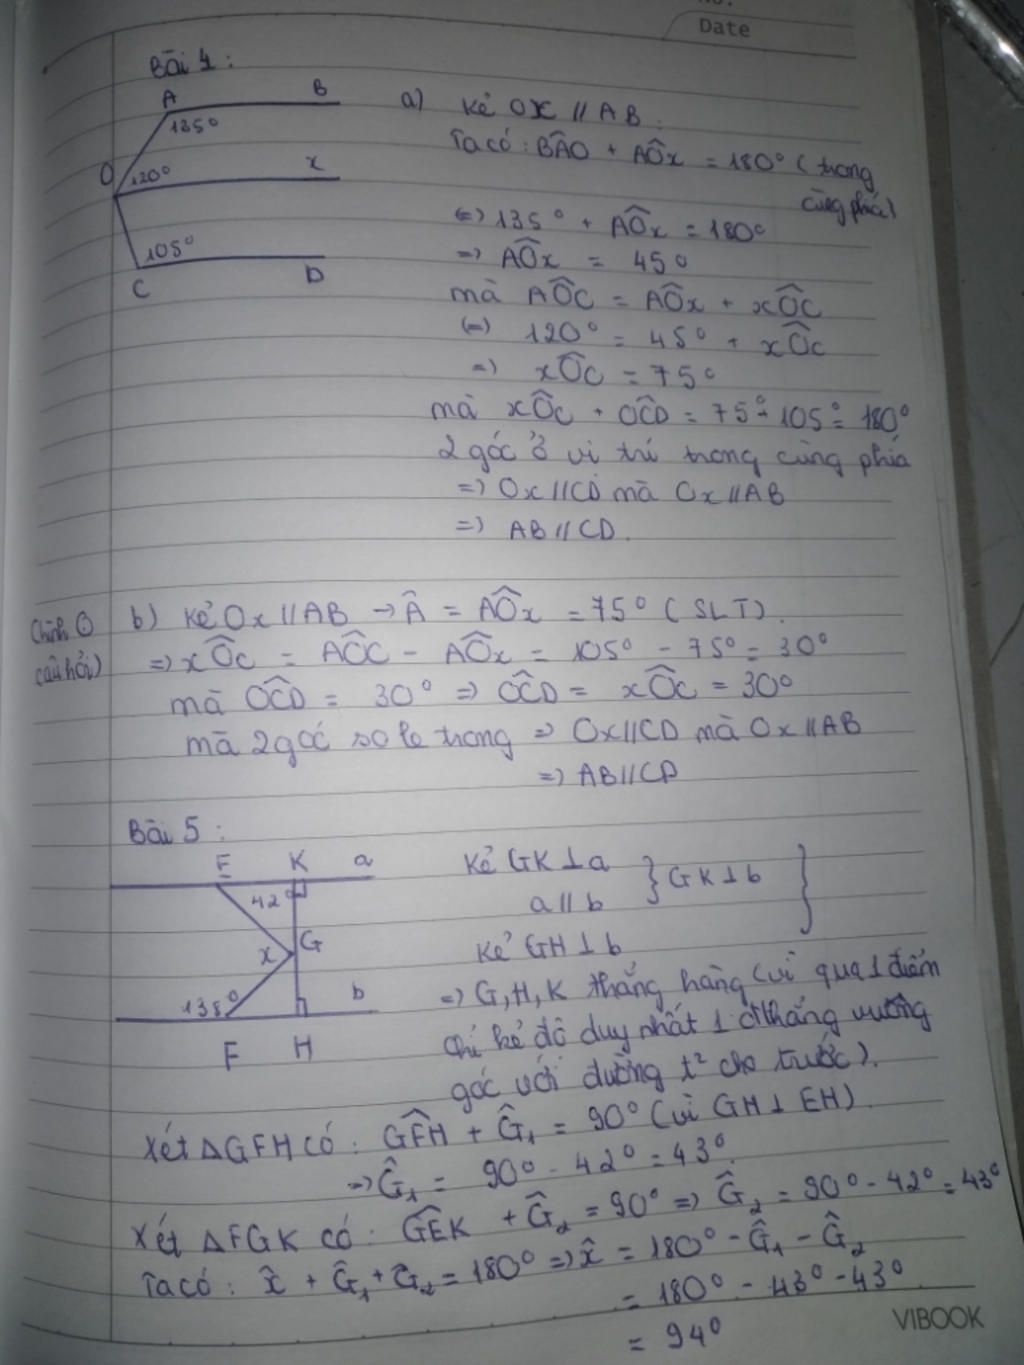 Date
Bài 4:
A
B
135°
O
120°
x
105°
C
D
a) Kẻ Ox // AB.
Ta có: BÂO + AÔx = 180° (trong
cùng phía)
(=) 135° + AÔx = 180°
=) AÔx = 45°
mà AÔC = AÔx + xÔC
(=) 120° = 45° + xÔc
=) xÔc = 75°
mà xÔc + OĈD = 75° + 105° = 180°
2 góc ở vị trí trong cùng phía
=) Ox // CD mà Ox // AB
=) AB // CD.
câu hỏi)
b) Kẻ Ox // AB → Â = AÔx = 75° (SLT).
=) xÔc = AÔC - AÔx = 105° - 75° = 30°
mà OĈD = 30° => OĈD = xÔc = 30°
mà 2 góc so le trong => Ox // CD mà Ox // AB
=) AB // CD
Bài 5:
E
K
a
42°
x
G
135°
b
F
H
Kẻ GK ⊥ a
a // b
} GK ⊥ b
}
Kẻ GH ⊥ b
=) G, H, K thẳng hàng (vì qua 1 điểm
chỉ kẻ đc duy nhất 1 đ thẳng vuông
góc với đường t² cho trước).
Xét ΔGFH có: GF̂H + Ĝ₁ = 90° (vì GH ⊥ EH).
=) Ĝ₁ = 90° - 42° = 43°.
Xét ΔFGK có: GÊK + Ĝ₂ = 90° => Ĝ₂ = 90° - 42° = 43°
Ta có: x̂ + Ĝ₁ + Ĝ₂ = 180° => x̂ = 180° - Ĝ₁ - Ĝ₂
= 180° - 43° - 43°
= 94°
VIBOOK